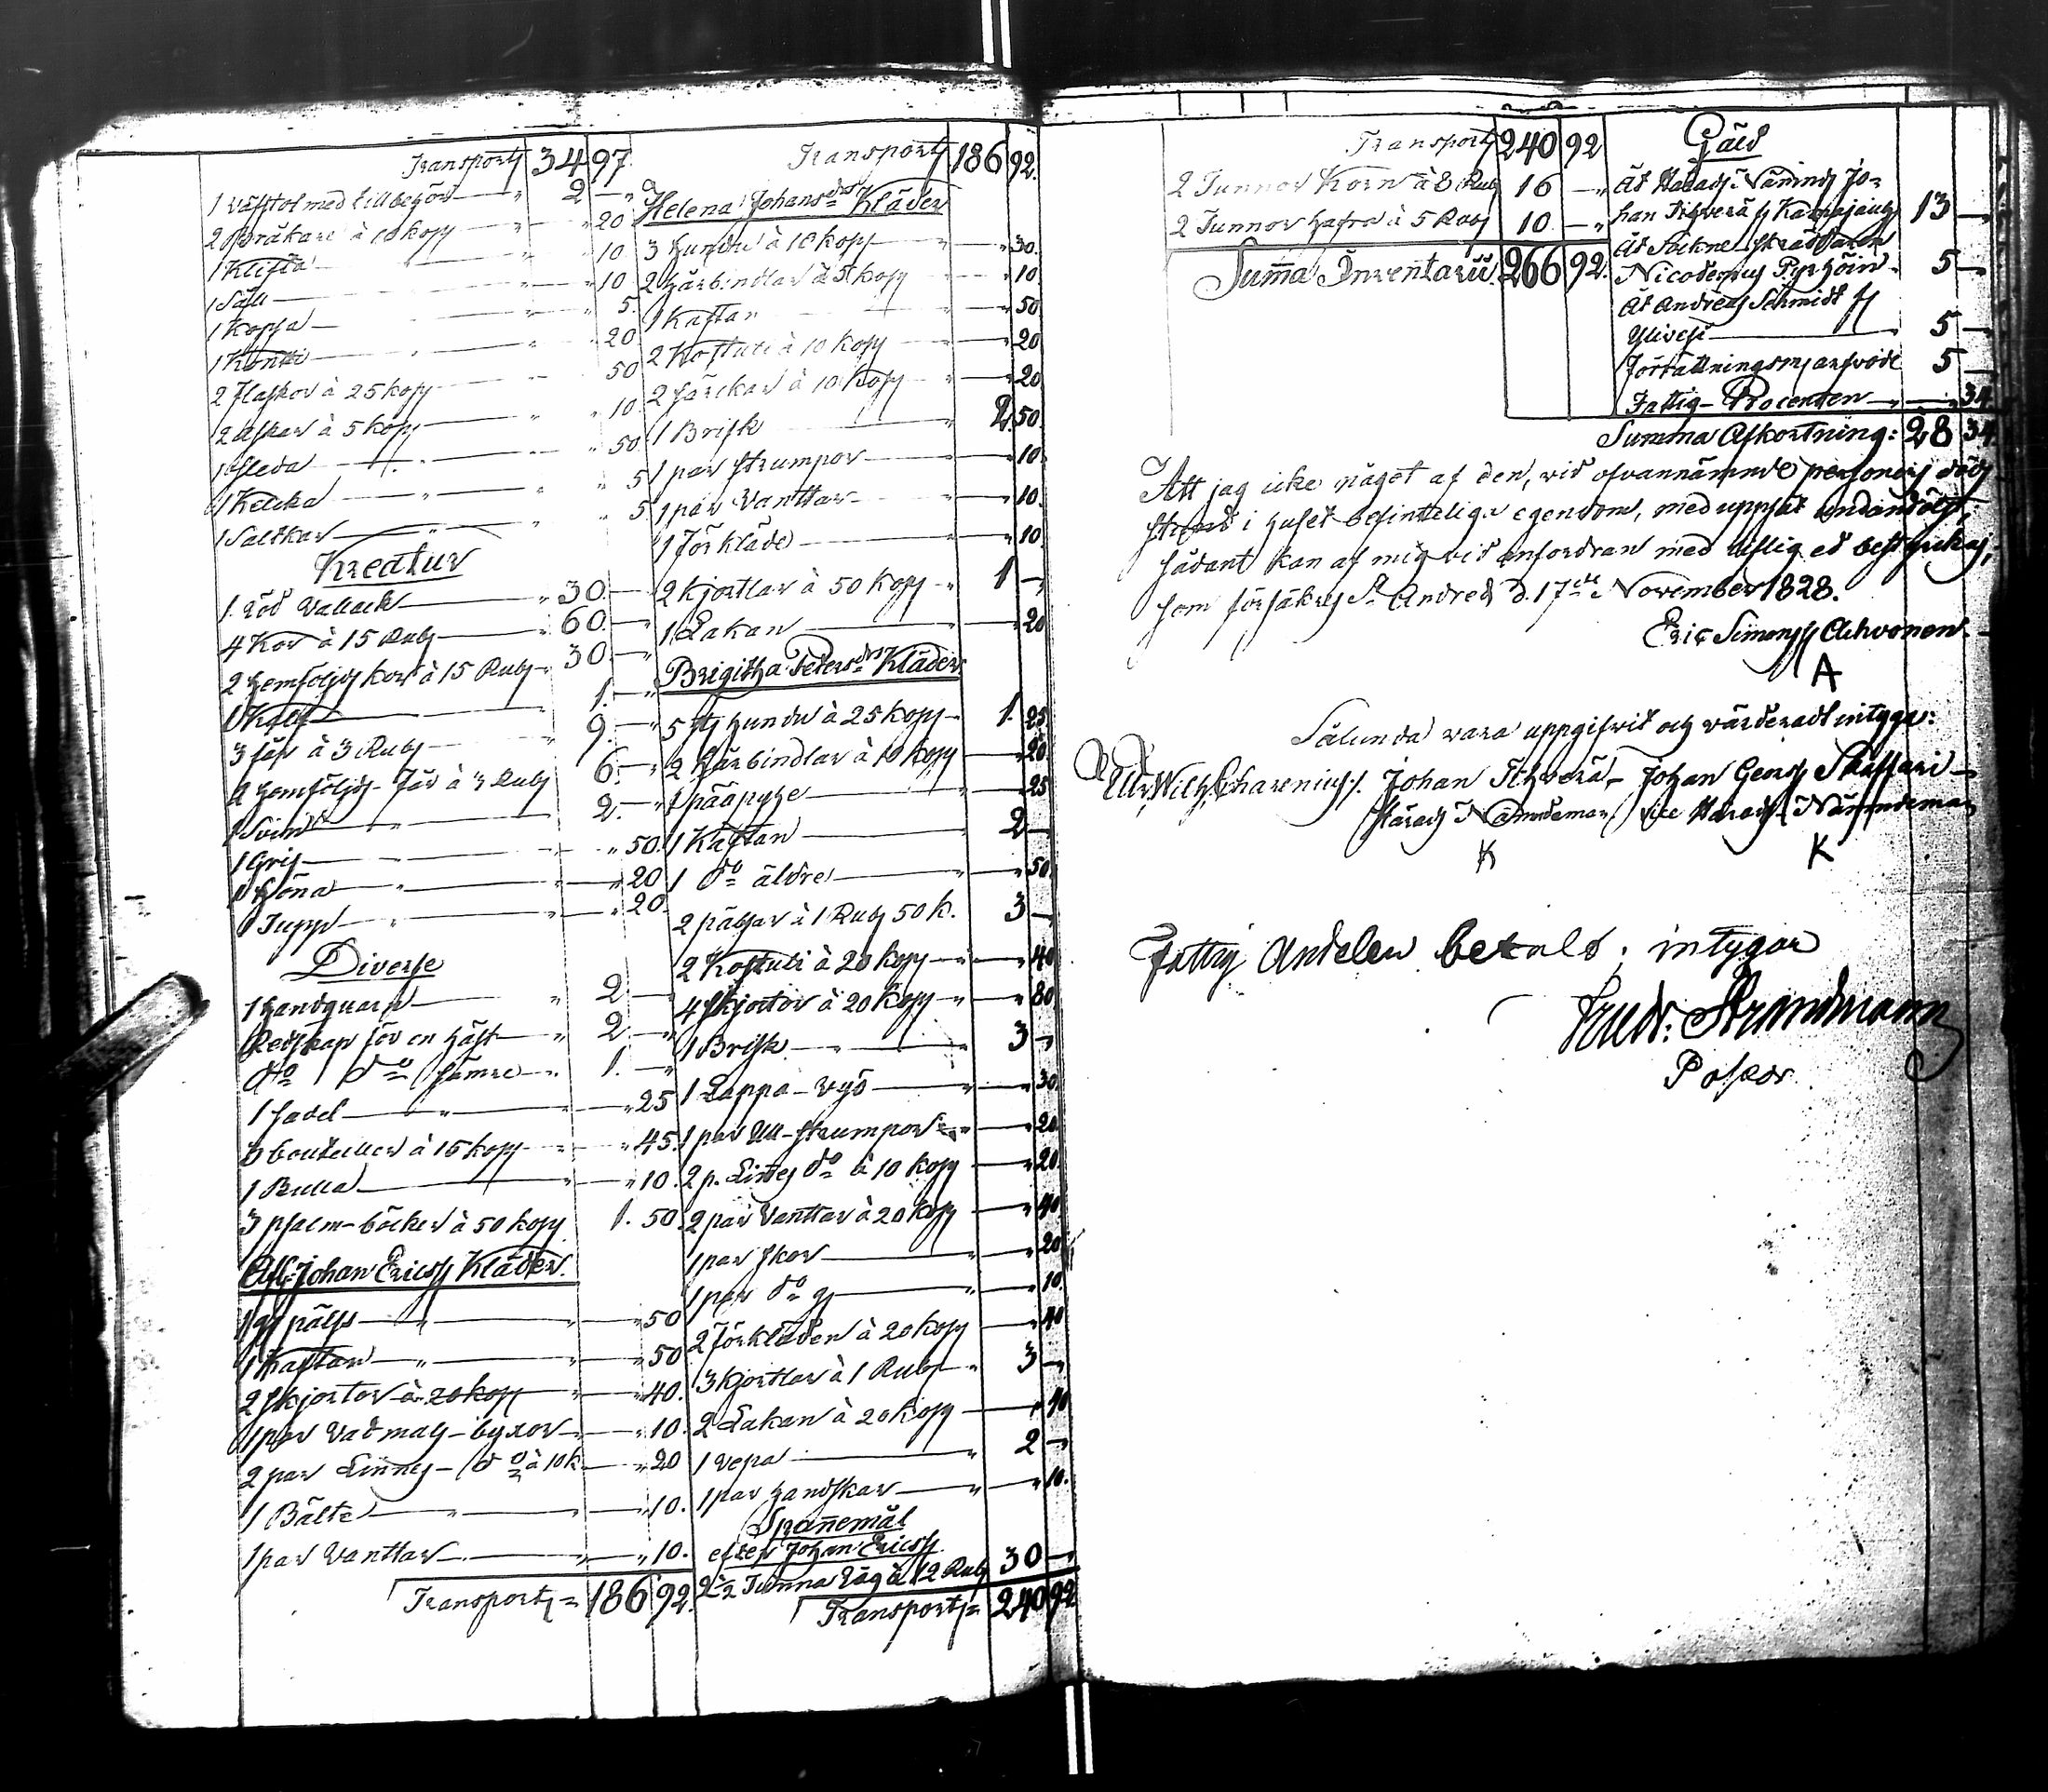 Transport 34 97.
1 väfstol med tillbehör 2 —
2 Bräkare à 10 kop 20
1 Klifta 10
1 Såll 10
1 Kopsa 5.
1 Kontti 20
2 Flaskor à 25 kop 50
2 Askar à 5 kop 10.
1 Sleda 50
1 Kelcka 5
1 Saltkar 5
Kreatur
1 röd Vallack 30. —
4 Kor à 15 Rub 60. —
2 hemföljds kor à 15 Rub 30. —
1 Kalf 1. —
3 får à 3 Rub 9. —
2 hemföljds Får à 3 Rub 6. —
1 Svin 2. —
1 Gris 50.
1 Höna 20
1 Tupp 20.
Diverse
1 handquarn 2. —
Redskap för en häst 2. —
dto do sämre 1. —
1 Sadel 25
3 bouteller à 15 kop 45.
1 Bulla 10.
3 psalm-böcker à 50 kop 1. 50.
Afl: Johan Ericss Kläder.
1 g päls 50
1 Kaftan 50
2 skjortor à 20 kop 40.
1 par Vadmals-byxor 10.
2 par Linnes-do à 10 k 20
1 Bälte 10.
1 par Vanttar 10.
Transport = 186 92.
Transport 186 92.
Helena Johansdr Kläder
3 hundu à 10 kop 30.
2 hårbindlar à 5 kop 10.
1 Kaftan 50
2 Kostuli à 10 kop 20
2 särckar à 10 kop 20
1 Brisk 2. 50.
1 par strumpor 10.
1 par Vanttar 10.
1 Förkläde 10.
2 kjortlar à 50 kop 1 —
1 Lakan 20
Brigitha Petersdr Kläder
5 st hundu à 25 kop 1. 25.
2 Hårbindlar à 10 kop 20
1 pääpyhe 25
1 Kaftan 2 —
1 do äldre 50.
2 pälsar à 1 Rub 50 k. 3 —
2 Kostuli à 20 kop 40
4 skjortor à 20 kop 80.
1 Brisk 3 —
1 Lappa-vyö 30.
1 par Ull-strumpor 20.
2 p. Linnes do à 10 kop 20.
2 par Vanttar à 20 kop 40.
1 par skor 20
1 par do g 10.
2 Förkläden à 20 kop 40
3 Kjortlar à 1 Rub 3 —
2 Lakan à 20 kop 40
1 vepa 2 —
1 par handskar 10.
Spannemål
efter Johan Ericss
2½ Tunna råg à 12 Rub 30 —
Transport = 240 92
Transport 240 92
2 Tunnor Korn à 8 Rub 16 —
2 Tunnor hafra à 5 Rub 10. —
Summa Inventarii. 266 92.
Gäld
Åt Härads Nämnds Jo-
han Ihverä fr Kamajauhs 13 —
Åt Sockne skräddaren
Nicodemus Pyrhöin 5 —
Åt Andreas Schmidt fr
Ylivesi 5 —
Förrättningsm arfvode 5 —
Fattig-Procenten 34.
Summa Afkortning: 28 34
Att jag icke något af den, vid ofvannämnde personers död
stund i huset befinteliga egendom, med uppsåt undandölgt,
sådant kan af mig vid anfordran med liflig ed bestyrckas,
som försäkras St Andreæ d. 17de November 1828.
Eric Simonss Ahvonen
A
Sålunda vara uppgifvit och värderadt intyga:
Ulr. Wilh. Charenius. Johan Ihverä Johan Georg Skaffari
Härads Nämndeman Vice Härads Nämndeman
K K
Fattig Andelen betald; intygar
Fredr: Strandmann
Pastor